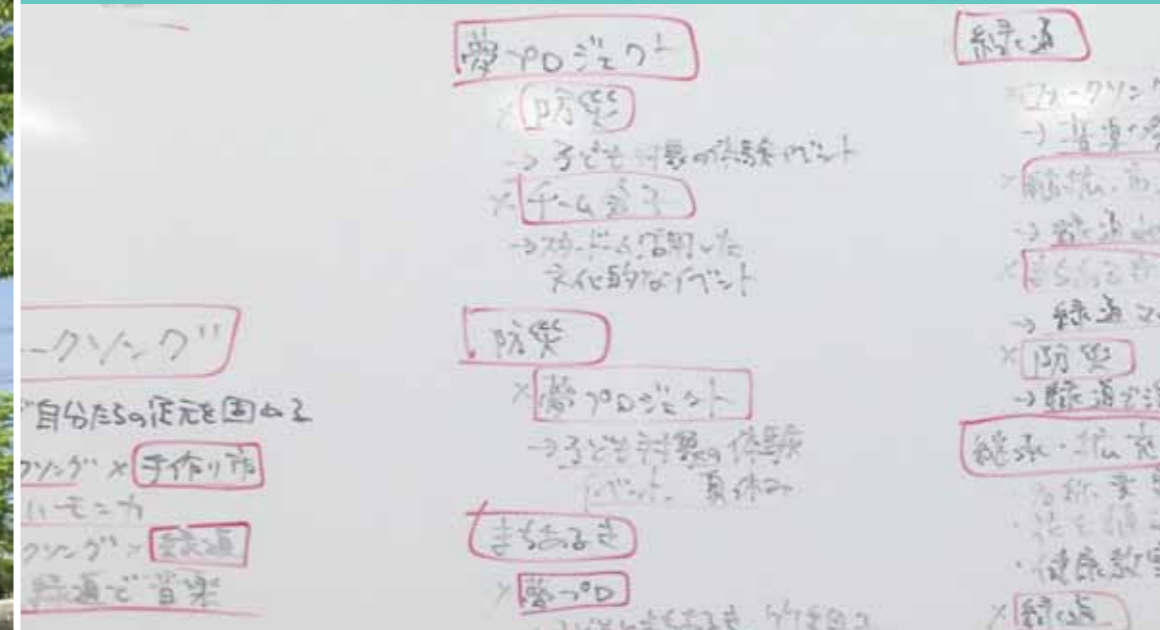 ークソング
自分たちの足元を固める
クソング × 手作り市
ハーモニカ
クソング × 緑道
緑道で音楽
夢プロジェクト
× 防災
→ 子ども対象の体験イベント
× チーム
→ スタードーム活用した
文化的なイベント
防災
× 夢プロジェクト
→ 子ども対象の体験
イベント 夏休み
まちあるき
× 夢プロ
緑道
フォークソング
→ 音楽
× 継承・拡
→ 緑道
× まちあるき
→ 緑道マ
× 防災
→ 緑道で
継承・拡充
・健康教室
× 緑道